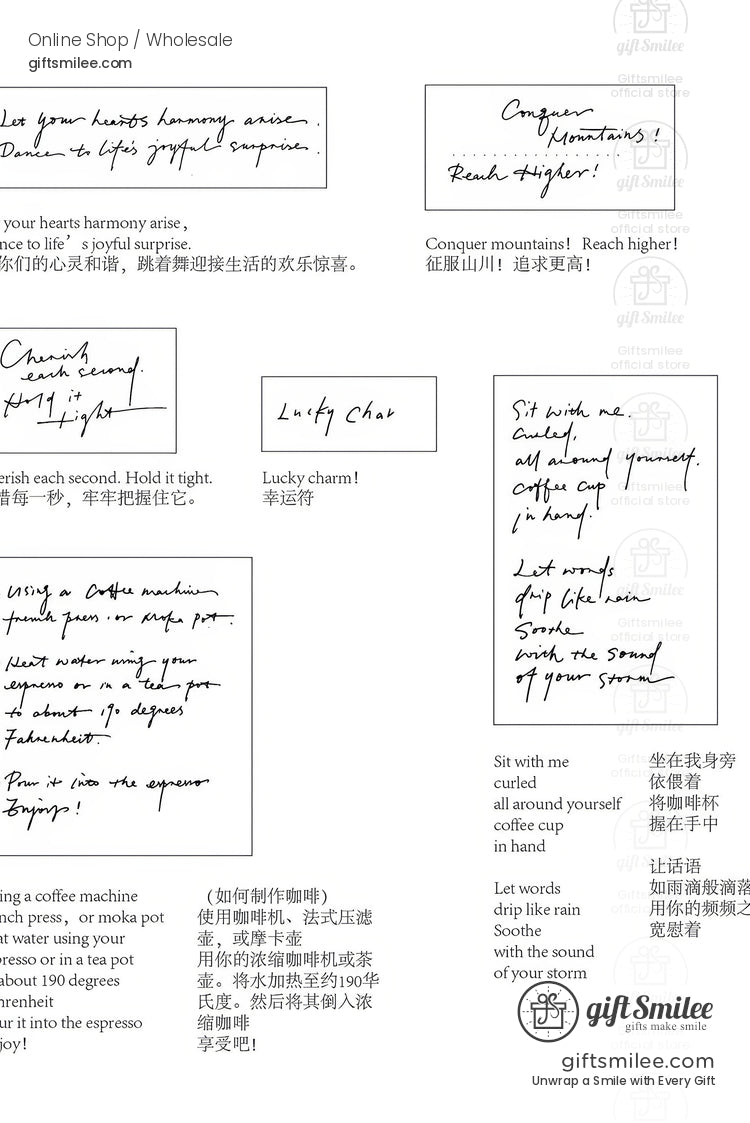 Online Shop / Wholesale
giftsmilee.com
Let your hearts harmony arise.
Dance to life's joyful surprise.
your hearts harmony arise,
nce to life's joyful surprise.
你们的心灵和谐，跳着舞迎接生活的欢乐惊喜。
Conquer
Mountains!
Reach Higher!
Conquer mountains! Reach higher!
征服山川！追求更高！
Cherish
each second.
Hold it
tight
erish each second. Hold it tight.
惜每一秒，牢牢把握住它。
Lucky Char
Lucky charm!
幸运符
Sit with me.
Curled,
all around yourself.
coffee cup
in hand.
Let words
drip like rain
Soothe
with the sound
of your storm
Sit with me
curled
all around yourself
coffee cup
in hand
Let words
drip like rain
Soothe
with the sound
of your storm
坐在我身旁
依偎着
将咖啡杯
握在手中
让话语
如雨滴般滴落
用你的频频之
宽慰着
Using a Coffee machine
french press, or Moka pot.
Heat water using your
espresso or in a tea pot
to about 190 degrees
Fahrenheit.
Pour it into the espresso
Enjoy!
ing a coffee machine
nch press, or moka pot
at water using your
presso or in a tea pot
about 190 degrees
hrenheit
ur it into the espresso
joy!
（如何制作咖啡）
使用咖啡机、法式压滤
壶，或摩卡壶
用你的浓缩咖啡机或茶
壶。将水加热至约190华
氏度。然后将其倒入浓
缩咖啡
享受吧！
gift Smilee
gifts make smile
giftsmilee.com
Unwrap a Smile with Every Gift
gift Smilee
Giftsmilee
official store
gift Smilee
Giftsmilee
official store
gift Smilee
Giftsmilee
official store